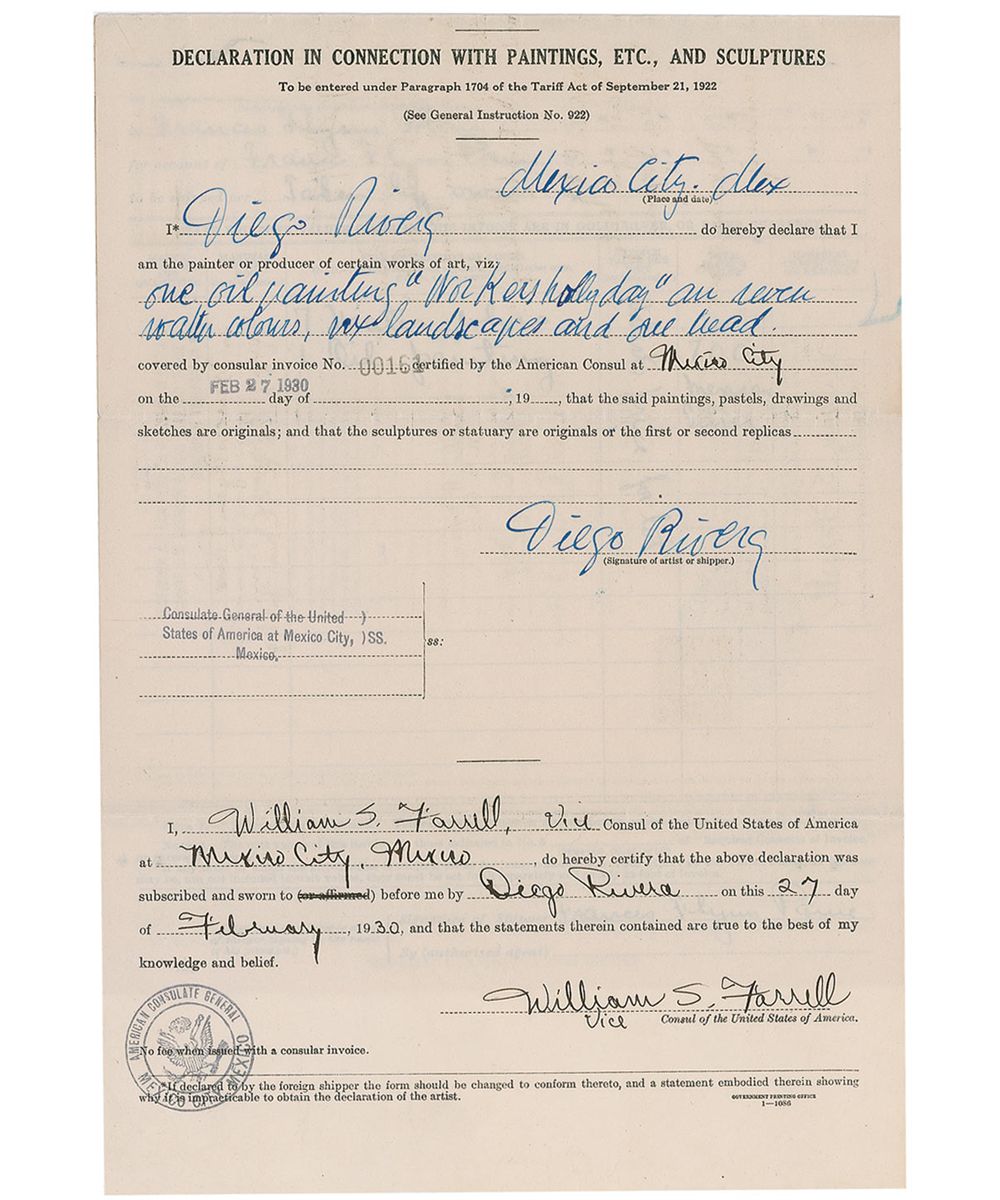 DECLARATION IN CONNECTION WITH PAINTINGS, ETC., AND SCULPTURES
To be entered under Paragraph 1704 of the Tariff Act of September 21, 1922
(See General Instruction No. 922)
Mexico City. Mex
(Place and date)
I* Diego Rivera do hereby declare that I
am the painter or producer of certain works of art, viz:
one oil painting "Workers hollyday" an seven
water colours, six landscapes and one head.
covered by consular invoice No. 00161 certified by the American Consul at Mexico City
FEB 27 1930
on the day of , 19 , that the said paintings, pastels, drawings and
sketches are originals; and that the sculptures or statuary are originals or the first or second replicas
Diego Rivera
(Signature of artist or shipper.)
Consulate General of the United )
States of America at Mexico City, )SS.
Mexico.
ss:
I, William S. Farrell, Vice Consul of the United States of America
at Mexico City, Mexico , do hereby certify that the above declaration was
subscribed and sworn to (or affirmed) before me by Diego Rivera on this 27 day
of February , 1930, and that the statements therein contained are true to the best of my
knowledge and belief.
William S. Farrell
Vice Consul of the United States of America.
AMERICAN CONSULATE GENERAL
MEXICO CITY MEXICO
No fee when issued with a consular invoice.
*If declared to by the foreign shipper the form should be changed to conform thereto, and a statement embodied therein showing
why it is impracticable to obtain the declaration of the artist.
GOVERNMENT PRINTING OFFICE
1—1086